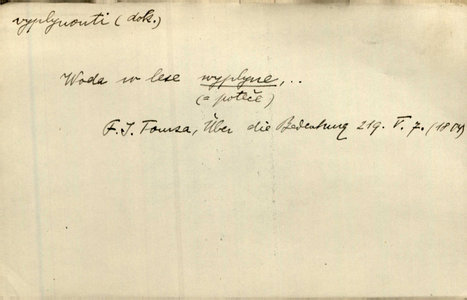 vyplynouti (dok.)
Woda w lese wyplyne, ..
(a poteče)
F. J. Tomsa, Über die Bedeutung 219. V. 7. (1804)